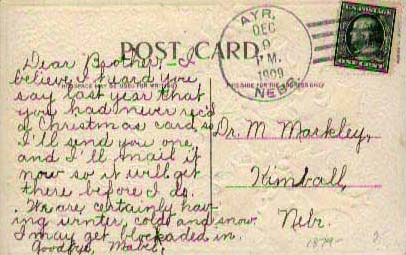 AYR.
DEC
9
P.M.
1909
NEBR.
POST CARD.
THIS SPACE MAY BE USED FOR WRITING
THIS SIDE FOR THE ADDRESS ONLY
Dear Brother, I
believe I heard you
say last year that
you had never rec'd
a Christmas card, so
I'll send you one,
and I'll mail it
now so it will get
there before I do.
We are certainly hav-
ing winter, cold and snow
I may get blockaded in.
Goodbye, Mabel.
Dr. M Markley,
Kimball,
Nebr.
1879-